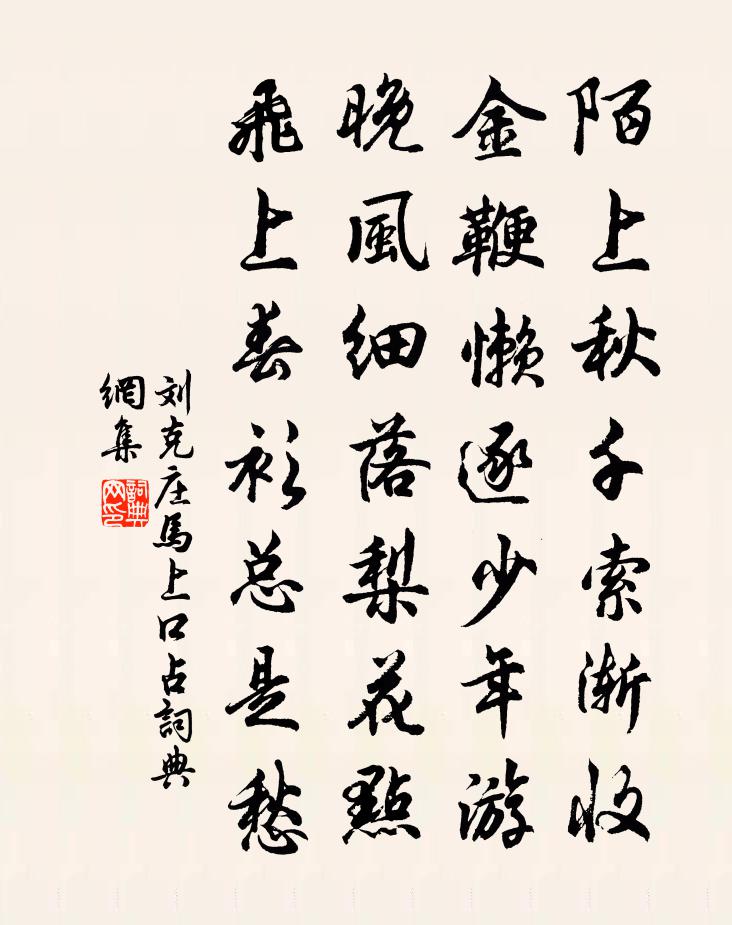 陌上秋千索漸收
金鞭懶逐少年游
晚風細落梨花點
飛上春衫总是愁
刘克庄馬上口占詞典
網集
詞典網印